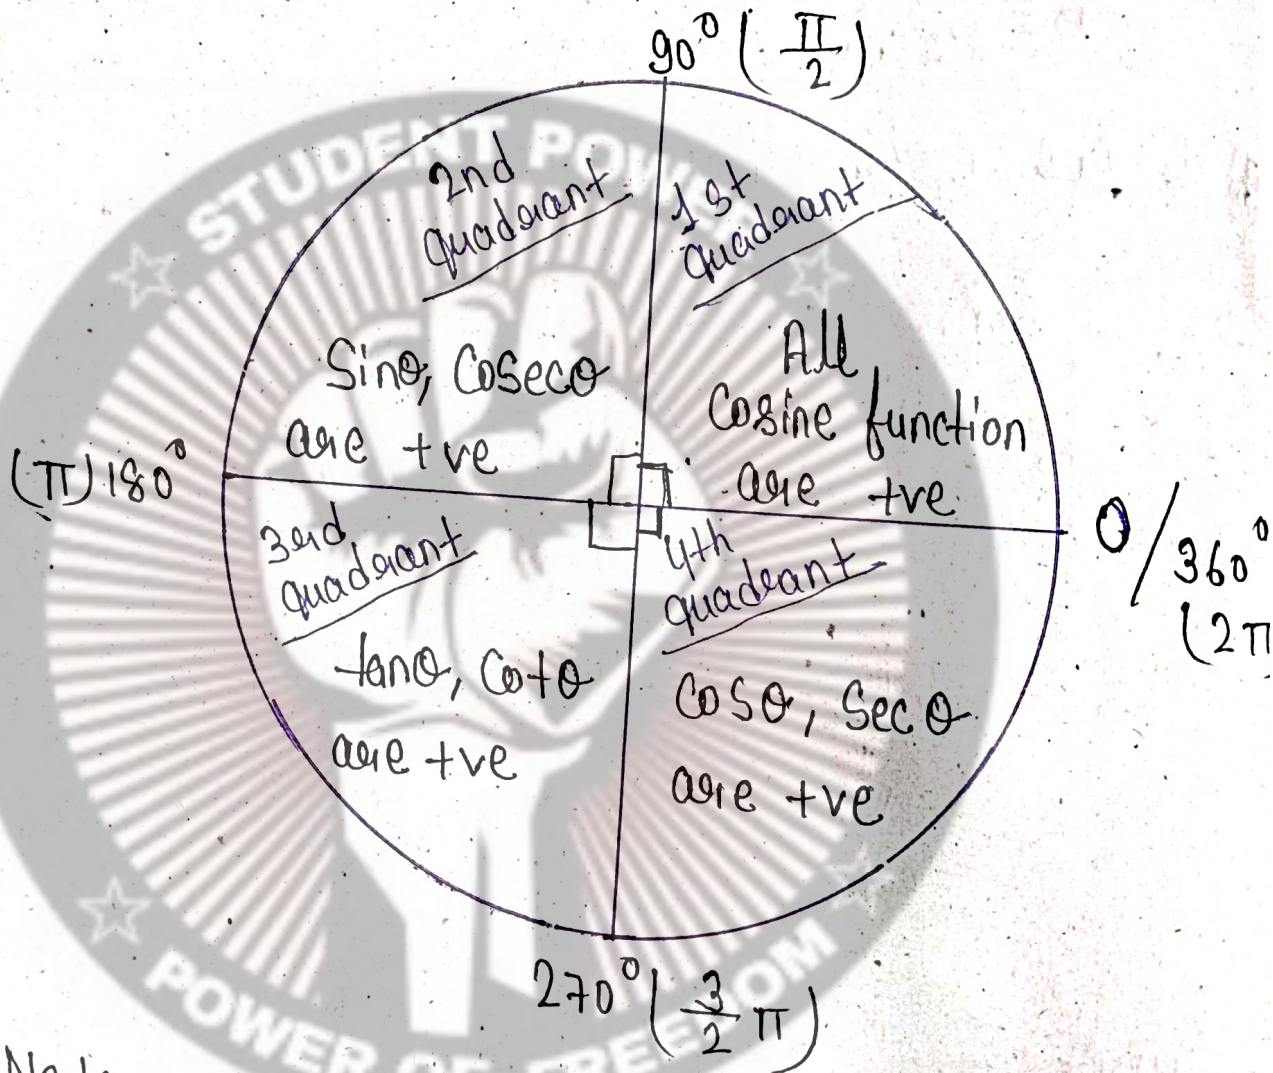 90° (π/2)
2nd
quadrant
1st
quadrant
Sinθ, Cosecθ
are +ve
All
Cosine function
are +ve
(π) 180°
0/360°
(2π
3rd
quadrant
4th
quadrant
tanθ, Cotθ
are +ve
Cosθ, Secθ
are +ve
270° (3/2 π)
STUDENT POWER
POWER OF FREEDOM